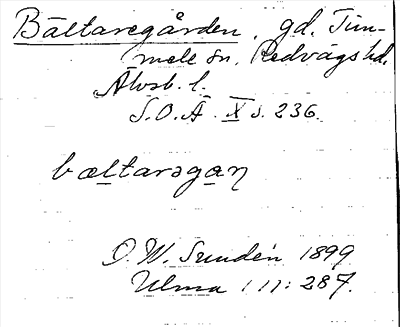 Bältaregården, gd. Tim-
mele sn, Redvägs hd.
Älvsb. l.
S.O.Ä. X s. 236.
bæltarəgan
D. W. Sundén 1899
Ulma 111: 287.